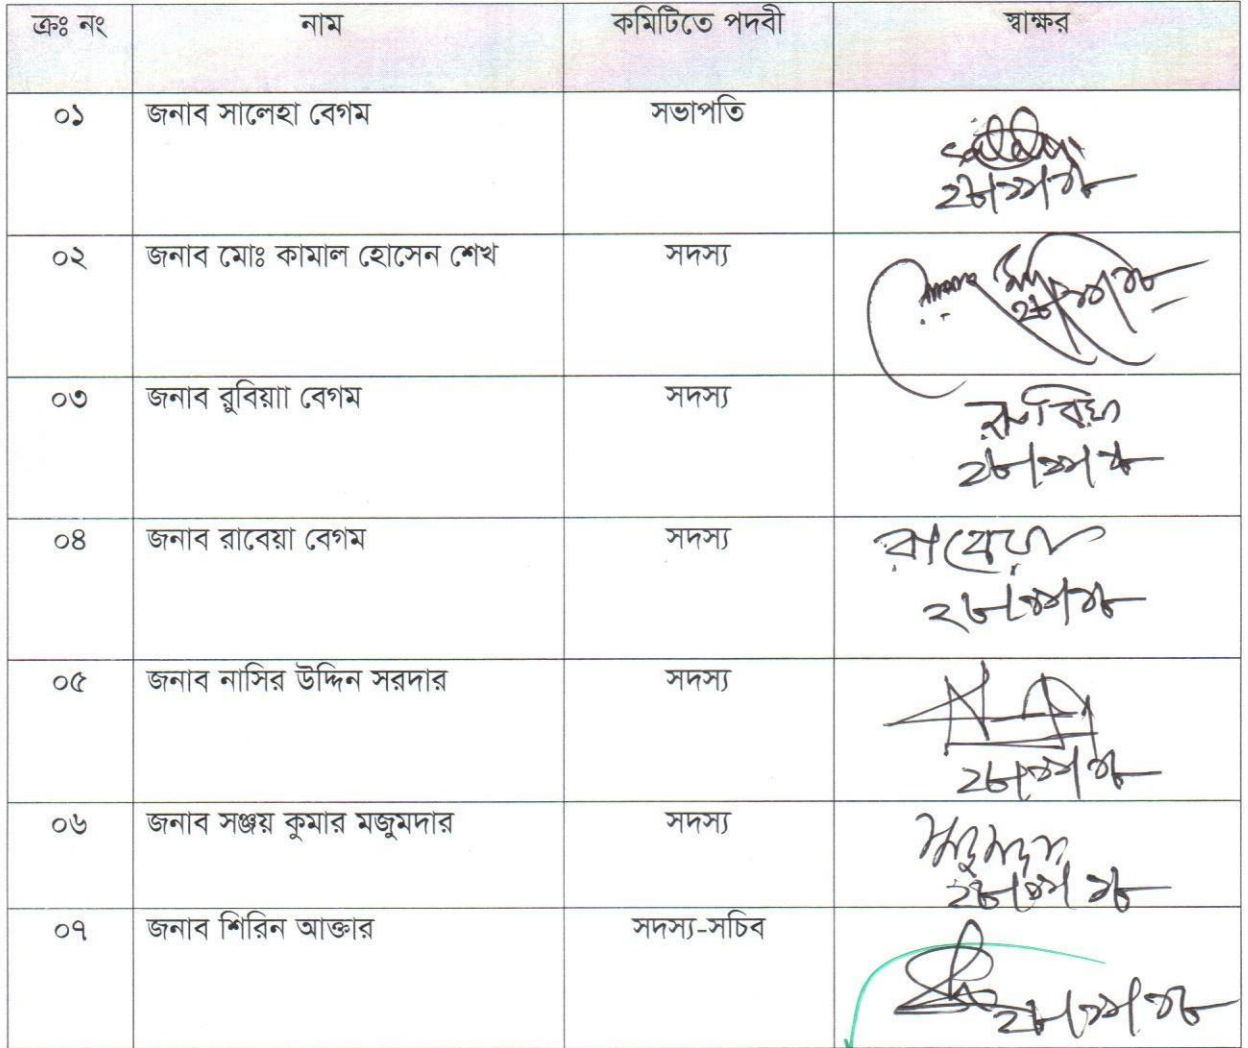 ক্রঃ নং নাম কমিটিতে পদবী স্বাক্ষর
০১ জনাব সালেহা বেগম সভাপতি
২৮/১১/১৮
০২ জনাব মোঃ কামাল হোসেন শেখ সদস্য
২৮/১১/১৮
০৩ জনাব রুবিয়াা বেগম সদস্য রুবিয়া
২৮/১১/১৮
০৪ জনাব রাবেয়া বেগম সদস্য রাবেয়া
২৮/১১/১৮
০৫ জনাব নাসির উদ্দিন সরদার সদস্য
২৮/১১/১৮
০৬ জনাব সঞ্জয় কুমার মজুমদার সদস্য
২৮/১১/১৮
০৭ জনাব শিরিন আক্তার সদস্য-সচিব
২৮/১১/১৮